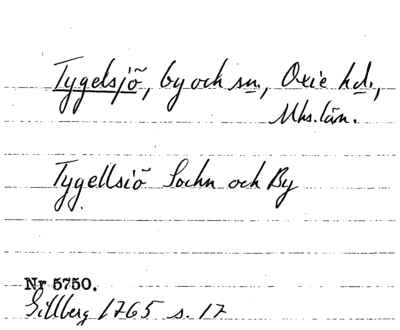 Tygelsjö, by och sn., Oxie hd.,
Mhs. län.
Tygellsiö Sochn och By
Nr 5750.
Gillberg 1765 s. 17